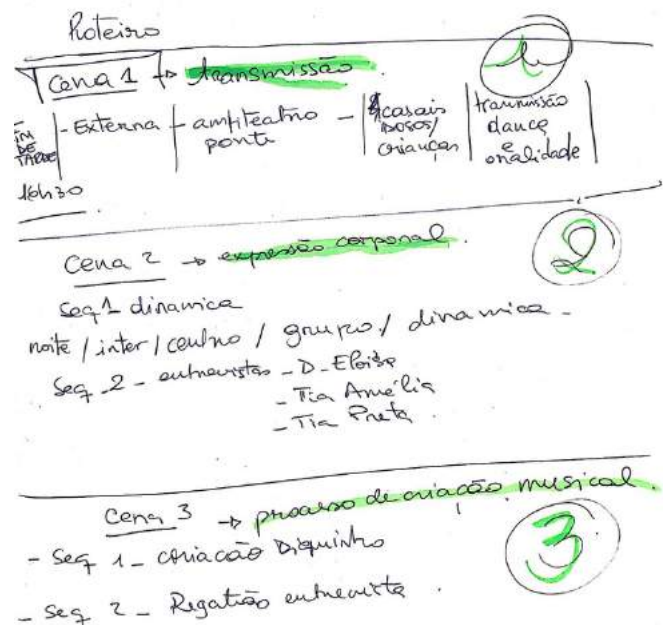 Roteiro
Cena 1 → transmissão. 1
FIM DE TARDE | - Externa - anfiteatro ponte - | casais idosos/ crianças | transmissão dança e oralidade |
16h30
Cena 2 → expressão corporal. 2
Seq 1 dinamica
noite / inter / centro / grupo / dinamica -
Seq 2 - entrevistas - D. Eloisa
- Tia Amélia
- Tia Preta.
Cena 3 → processo de criação musical. 3
- Seq 1 - criação
- Seq 2 - Regatão entrevista.